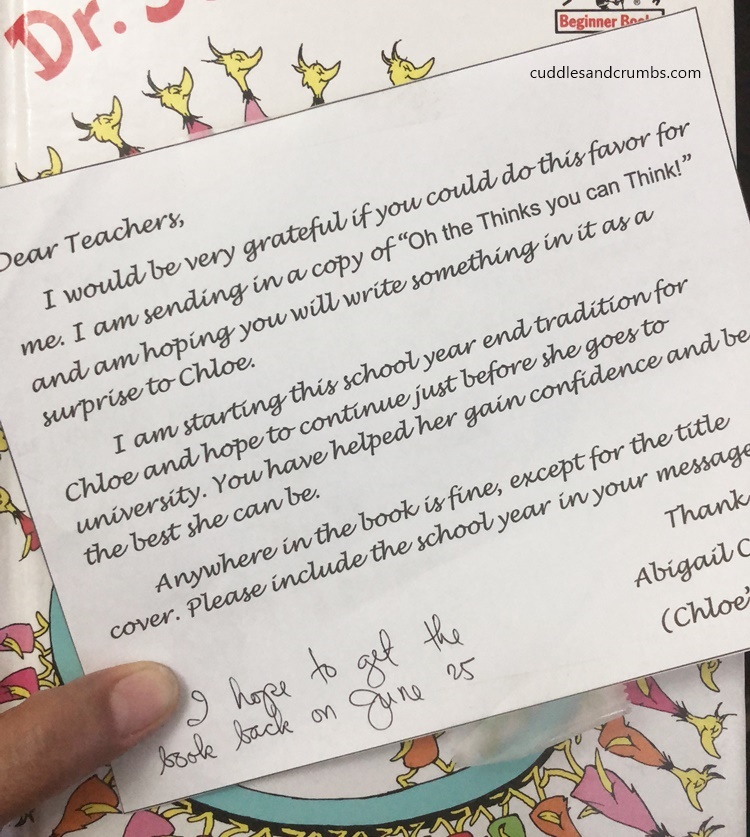 Dr. S
Beginner Boo
cuddlesandcrumbs.com
Dear Teachers,
I would be very grateful if you could do this favor for
me. I am sending in a copy of "Oh the Thinks you can Think!"
and am hoping you will write something in it as a
surprise to Chloe.
I am starting this school year end tradition for
Chloe and hope to continue just before she goes to
university. You have helped her gain confidence and be
the best she can be.
Anywhere in the book is fine, except for the title
cover. Please include the school year in your message
Thank
Abigail C
(Chloe'
I hope to get the
book back on June 25